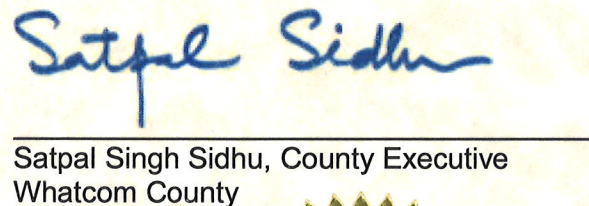 Satpal Sidhu
Satpal Singh Sidhu, County Executive
Whatcom County